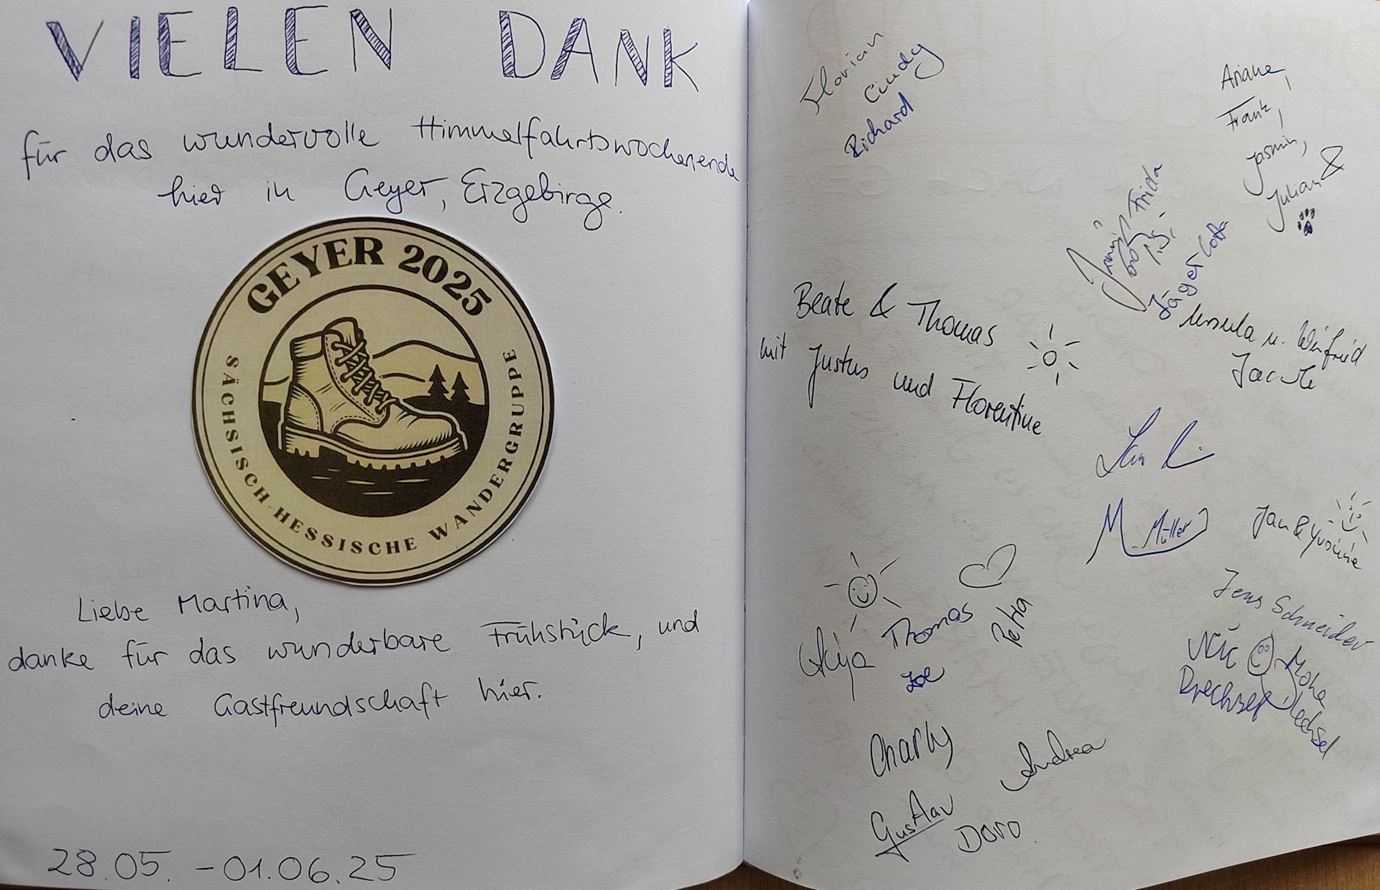 VIELEN DANK
für das wundervolle Himmelfahrtswochenende
hier in Geyer, Erzgebirge.
GEYER 2025
SÄCHSISCH-HESSISCHE WANDERGRUPPE
Liebe Martina,
danke für das wunderbare Frühstück, und
deine Gastfreundschaft hier.
28.05. - 01.06.25
Florian
Cindy
Richard
Ariane,
Frank,
Jasmin,
Julian &
Frida
Jäger Lotta
Beate & Thomas
mit Justus und Florentine
Ursula u. Winfried
M. Müller
Jan &
Jens Schneider
Thomas
Petra
Zoe
Nic
Drechsel
Charly
Andrea
Gustav
Doro